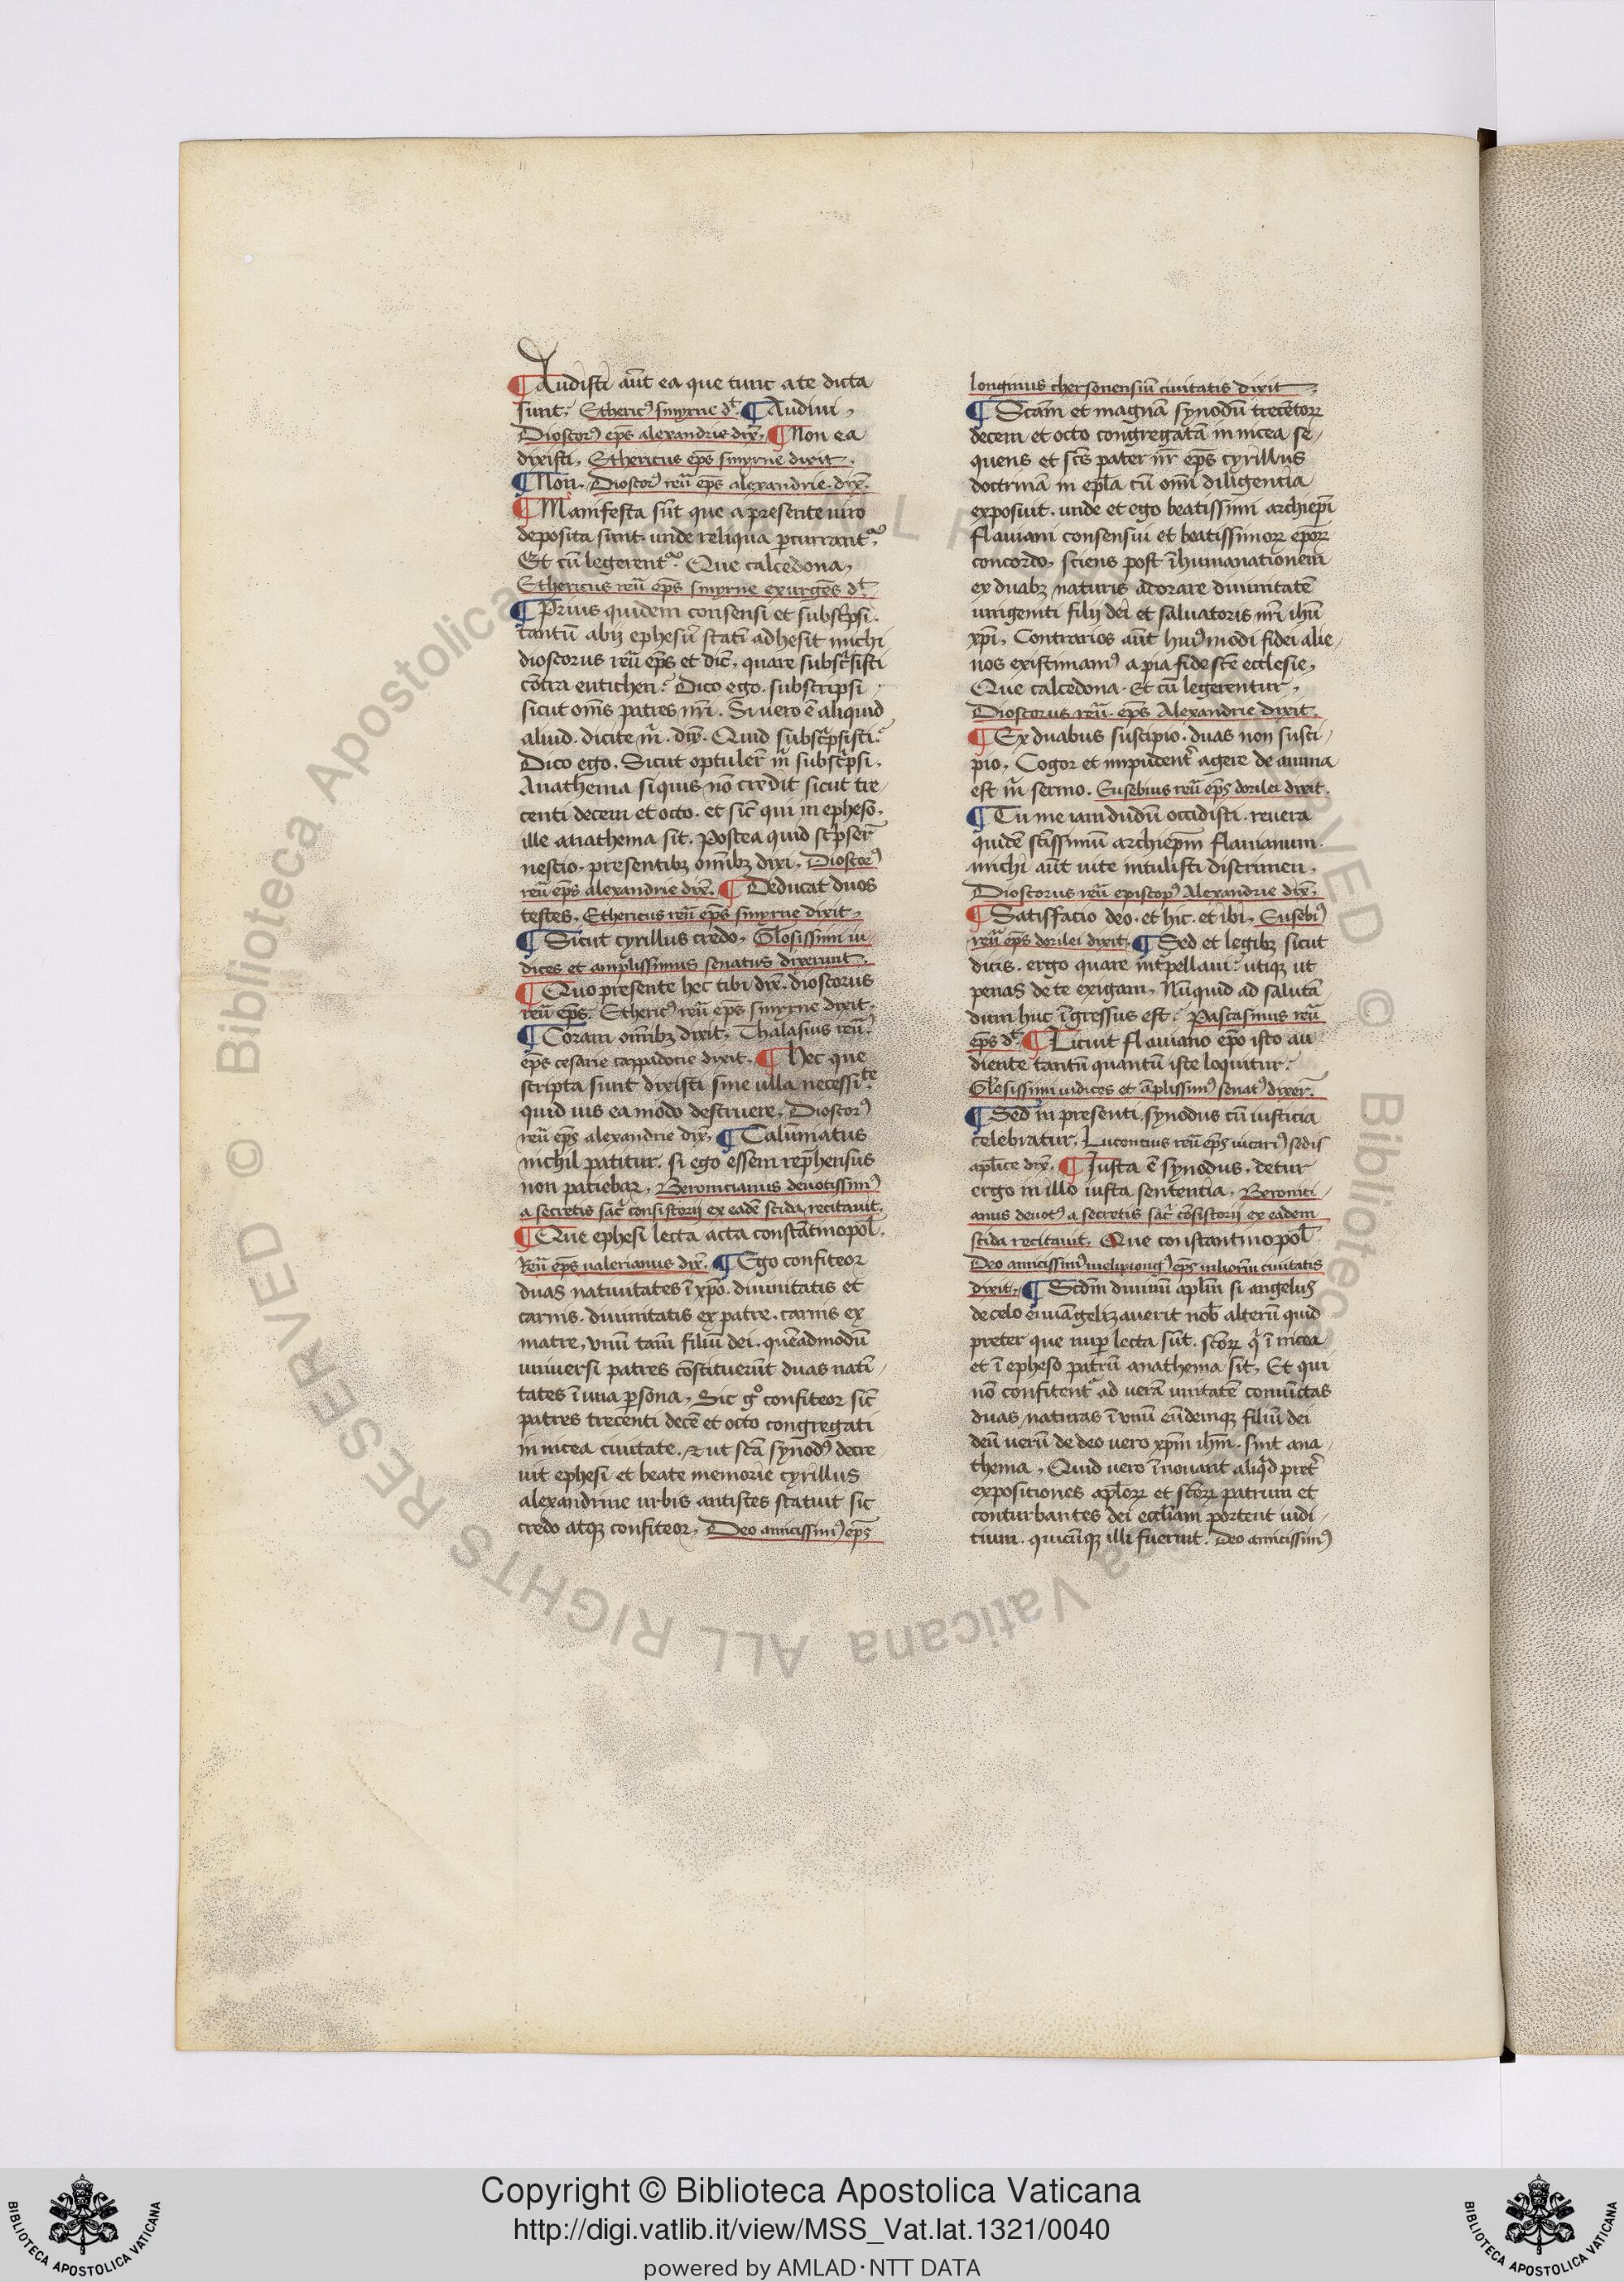 ¶ Audisti aūt ea que tunc a te dicta
sunt. Etheric᷒ smyrne dt̄. ¶ Audiui,
Dioscor᷒ ep̄s alexandrie dix̄. ¶ Non ea
dixisti. Ethericus ep̄s smyrne dixit.
¶ Non. Dioscor᷒ reū ep̄s alexandrie. dix̄.
¶ Manifesta sūt que a presente uiro
deposita sunt. unde reliqua ꝑcurrant᷑.
Et cū legerent᷑. Que calcedona,
Ethericus reū ep̄s smyrne exurgēs dt̄
¶ Prius quidem consensi et subsc̄psi.
tantū abij ephesū statī adhesit michi
dioscorus reū ep̄s et dic̄. quare subsc̄psisti
cōtra eutichen. Dico ego. subscripsi
sicut om̄s patres nr̄i. Si uero ē aliquid
aliud. dicite m̄. dix̄. Quid subsc̄psisti.
Dico ego. Sicut optuler̄ m̄ subsc̄psi.
Anathema si quis nō credit sicut tre
centi decem et octo. et sic̄ qui in epheso.
ille anathema sit. Postea quid sc̄pser̄
nescio. presentibꝫ om̄ibꝫ dixi. Dioscor᷒
reū ep̄s alexandrie dix̄. ¶ Deducat duos
testes. Ethericus reū ep̄s smyrne dixit,
¶ Sicut cyrillus credo. Gl̄osissimi iu
dices et amplissimus senatus dixerunt.
¶ Quo presente hec tibi dix̄. dioscorus
reū ep̄s. Etheric᷒ reū ep̄s smyrne dixit.
¶ Coram om̄ibꝫ dixit. Thalasius reū
ep̄s cesarie cappadocie dixit. ¶ Hec que
scripta sunt dixisti sine ulla necessi.te
quid uis ea modo destruere. Dioscor᷒
reū ep̄s alexandrie dix̄. ¶ Calūmatus
nichil patitur. si ego essem rep̄hensus
non patiebaꝛ. Beronicianus deuotissim᷒
a secretis sac̄ consistorij ex eadē scida recitauit.
¶ Que ephesi lecta acta constātinopol̄.
Reū ep̄s ualerianus dix̄. ¶ Ego confiteor
duas natiuitates ī xp̄o. diuinitatis et
carnis. diuinitatis ex patre. carnis ex
matre, unū tam̄ filiū dei. quēadmodū
uniuersi patres cōstituerūt duas nati
tates ī una ꝑsona. Sic gº confiteor sic̄
patres trecenti decē et octo congregati
in nicea ciuitate. et ut sc̄a synod᷒ decre
uit ephesi et beate memorie cyrillus
alexandrine urbis antistes statuit sic
credo atqꝫ confiteor. Deo amicissim᷒ ep̄s
longinus chersonensiū ciuitatis dixit
¶ Sc̄am et magnā synodū trecētoꝝ
decem et octo congregatā in nicea se
quens et sc̄s pater nr̄ ep̄s cyrillus
doctrinā in epl̄a cū om̄i diligentia
exposuit. unde et ego beatissimi archiep̄i
flauiani consensui et beatissimoꝝ ep̄oꝝ
concordo, sciens post īhumanationem
ex duabꝫ naturis adorare diuinitatē
unigeniti filij dei et saluatoris nr̄i ih̄u
xp̄i. Contrarios aūt hui᷒modi fidei alie
nos existimam᷒ a pia fide sc̄e ecclesie,
Que calcedona. Et cū legerentur,
Dioscorus reū. ep̄s Alexandrie dixit.
¶ Ex duabus suscipio. duas non susci
pio. Cogor et impudent̄ agere de anima
est m̄ sermo. Eusebius reū ep̄s dorilei dixit.
¶ Tu me iam dudū occidisti. reuera
quidē sc̄issimū archiep̄m flauianum.
michi aūt uite intulisti discrimen.
Dioscorus reū episcop᷒ Alexandrie dix̄.
¶ Satisfacio deo. et hic. et ibi. Eusebi᷒
reū ep̄s dorilei dixit. ¶ Sed et legibꝫ sicut
dicis. ergo quare int̄pellaui. utiqꝫ ut
penas de te exigam. Nūquid ad salutā
dum huc īgressus est. Pascasinus reū
ep̄s dt̄. ¶ Licuit flauiano ep̄o isto au
diente tantū quantū iste loquitur.
Gl̄osissimi iudices et āplissim᷒ senat᷒ dixer̄.
¶ Sed in presenti synodus cū iusticia
celebratur. Lucentius reū ep̄s uicari᷒ sedis
apl̄ice dix̄. ¶ Justa ē synodus. detur
ergo in illo iusta sententia. Beronici
anus deuot᷒ a secretis sac̄ cōsistorij ex eadem
scida recitauit. Que constantinopol̄
Deo amicissim᷒ ep̄s ciuitatis
dixit. ¶ Scd̄m diuinū apl̄m si angelus
de celo euāgelizauerit nob̄ alterū quid
preter que nuꝑ lecta sūt. sc̄oꝝ q̄ ī nicea
et ī epheso patrū anathema sit. Et qui
nō confitent᷑ ad uerā unitatē coniūctas
duas naturas ī unū eūdemqꝫ filiū dei
deū uerū de deo uero xp̄m ih̄m. sint ana
thema. Quid uero īnouant aliq̄d pret̄
expositiones apl̄oꝝ et sc̄oꝝ patrum et
conturbantes dei eccl̄iam portent iudi
cium. quicūqꝫ illi fuerint. Deo amicissim᷒
Copyright © Biblioteca Apostolica Vaticana
http://digi.vatlib.it/view/MSS_Vat.lat.1321/0040
powered by AMLAD·NTT DATA
BIBLIOTECA APOSTOLICA VATICANA
BIBLIOTECA APOSTOLICA VATICANA
© Biblioteca Apostolica Vaticana ALL RIGHTS RESERVED